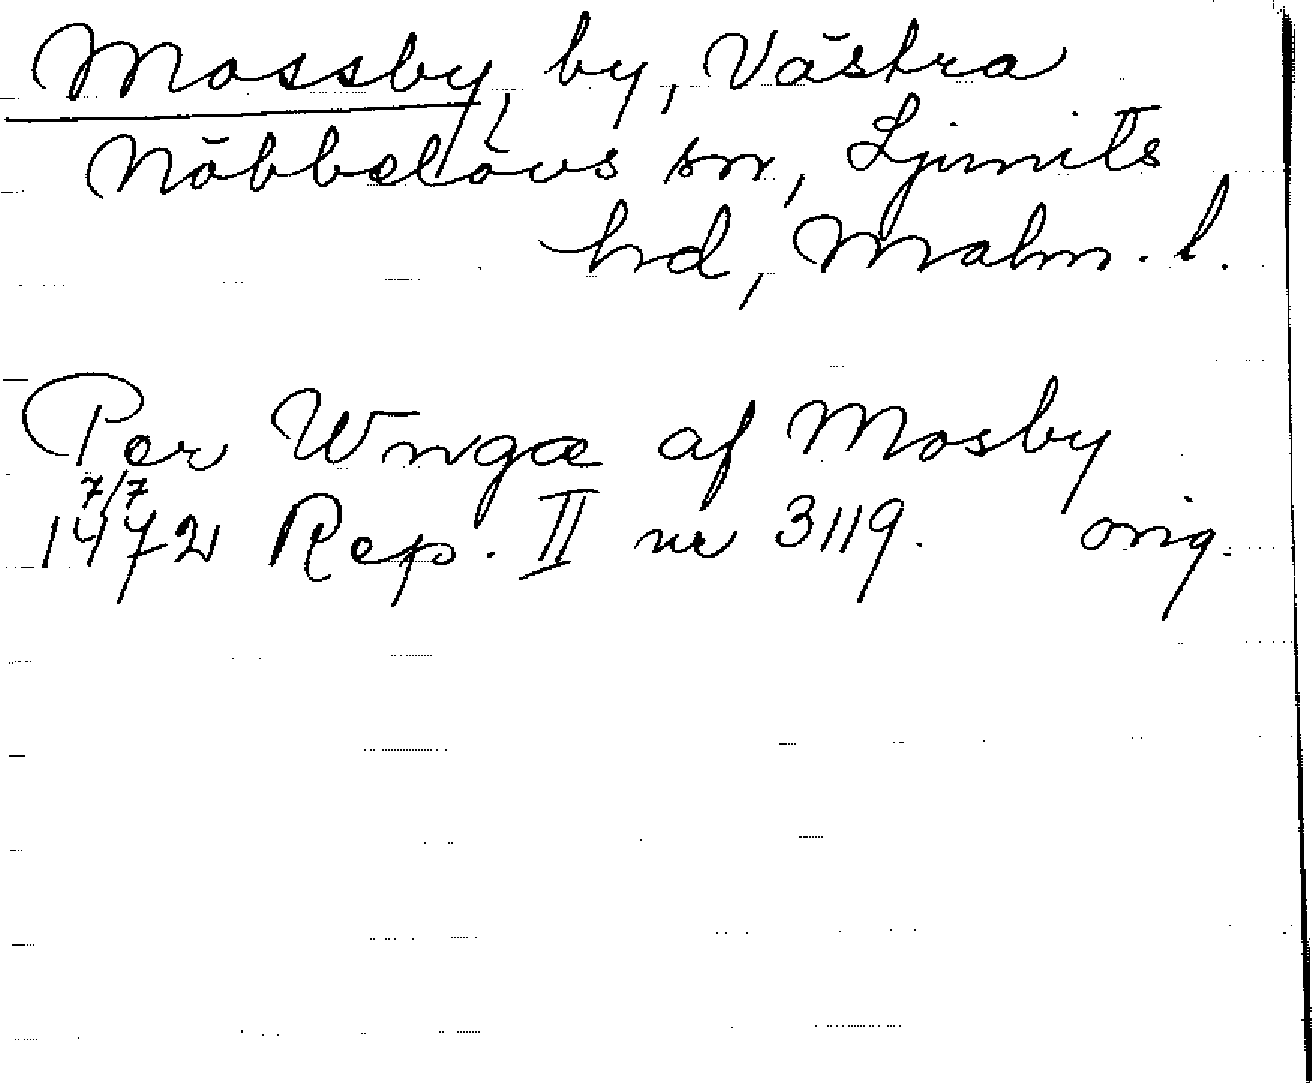 Mossby, by, Västra
Nöbbelövs sn, Ljunits
hd, Malm. l.
Per Wngæ af Mosby
7/7
1472 Rep. II nr 3119. orig.